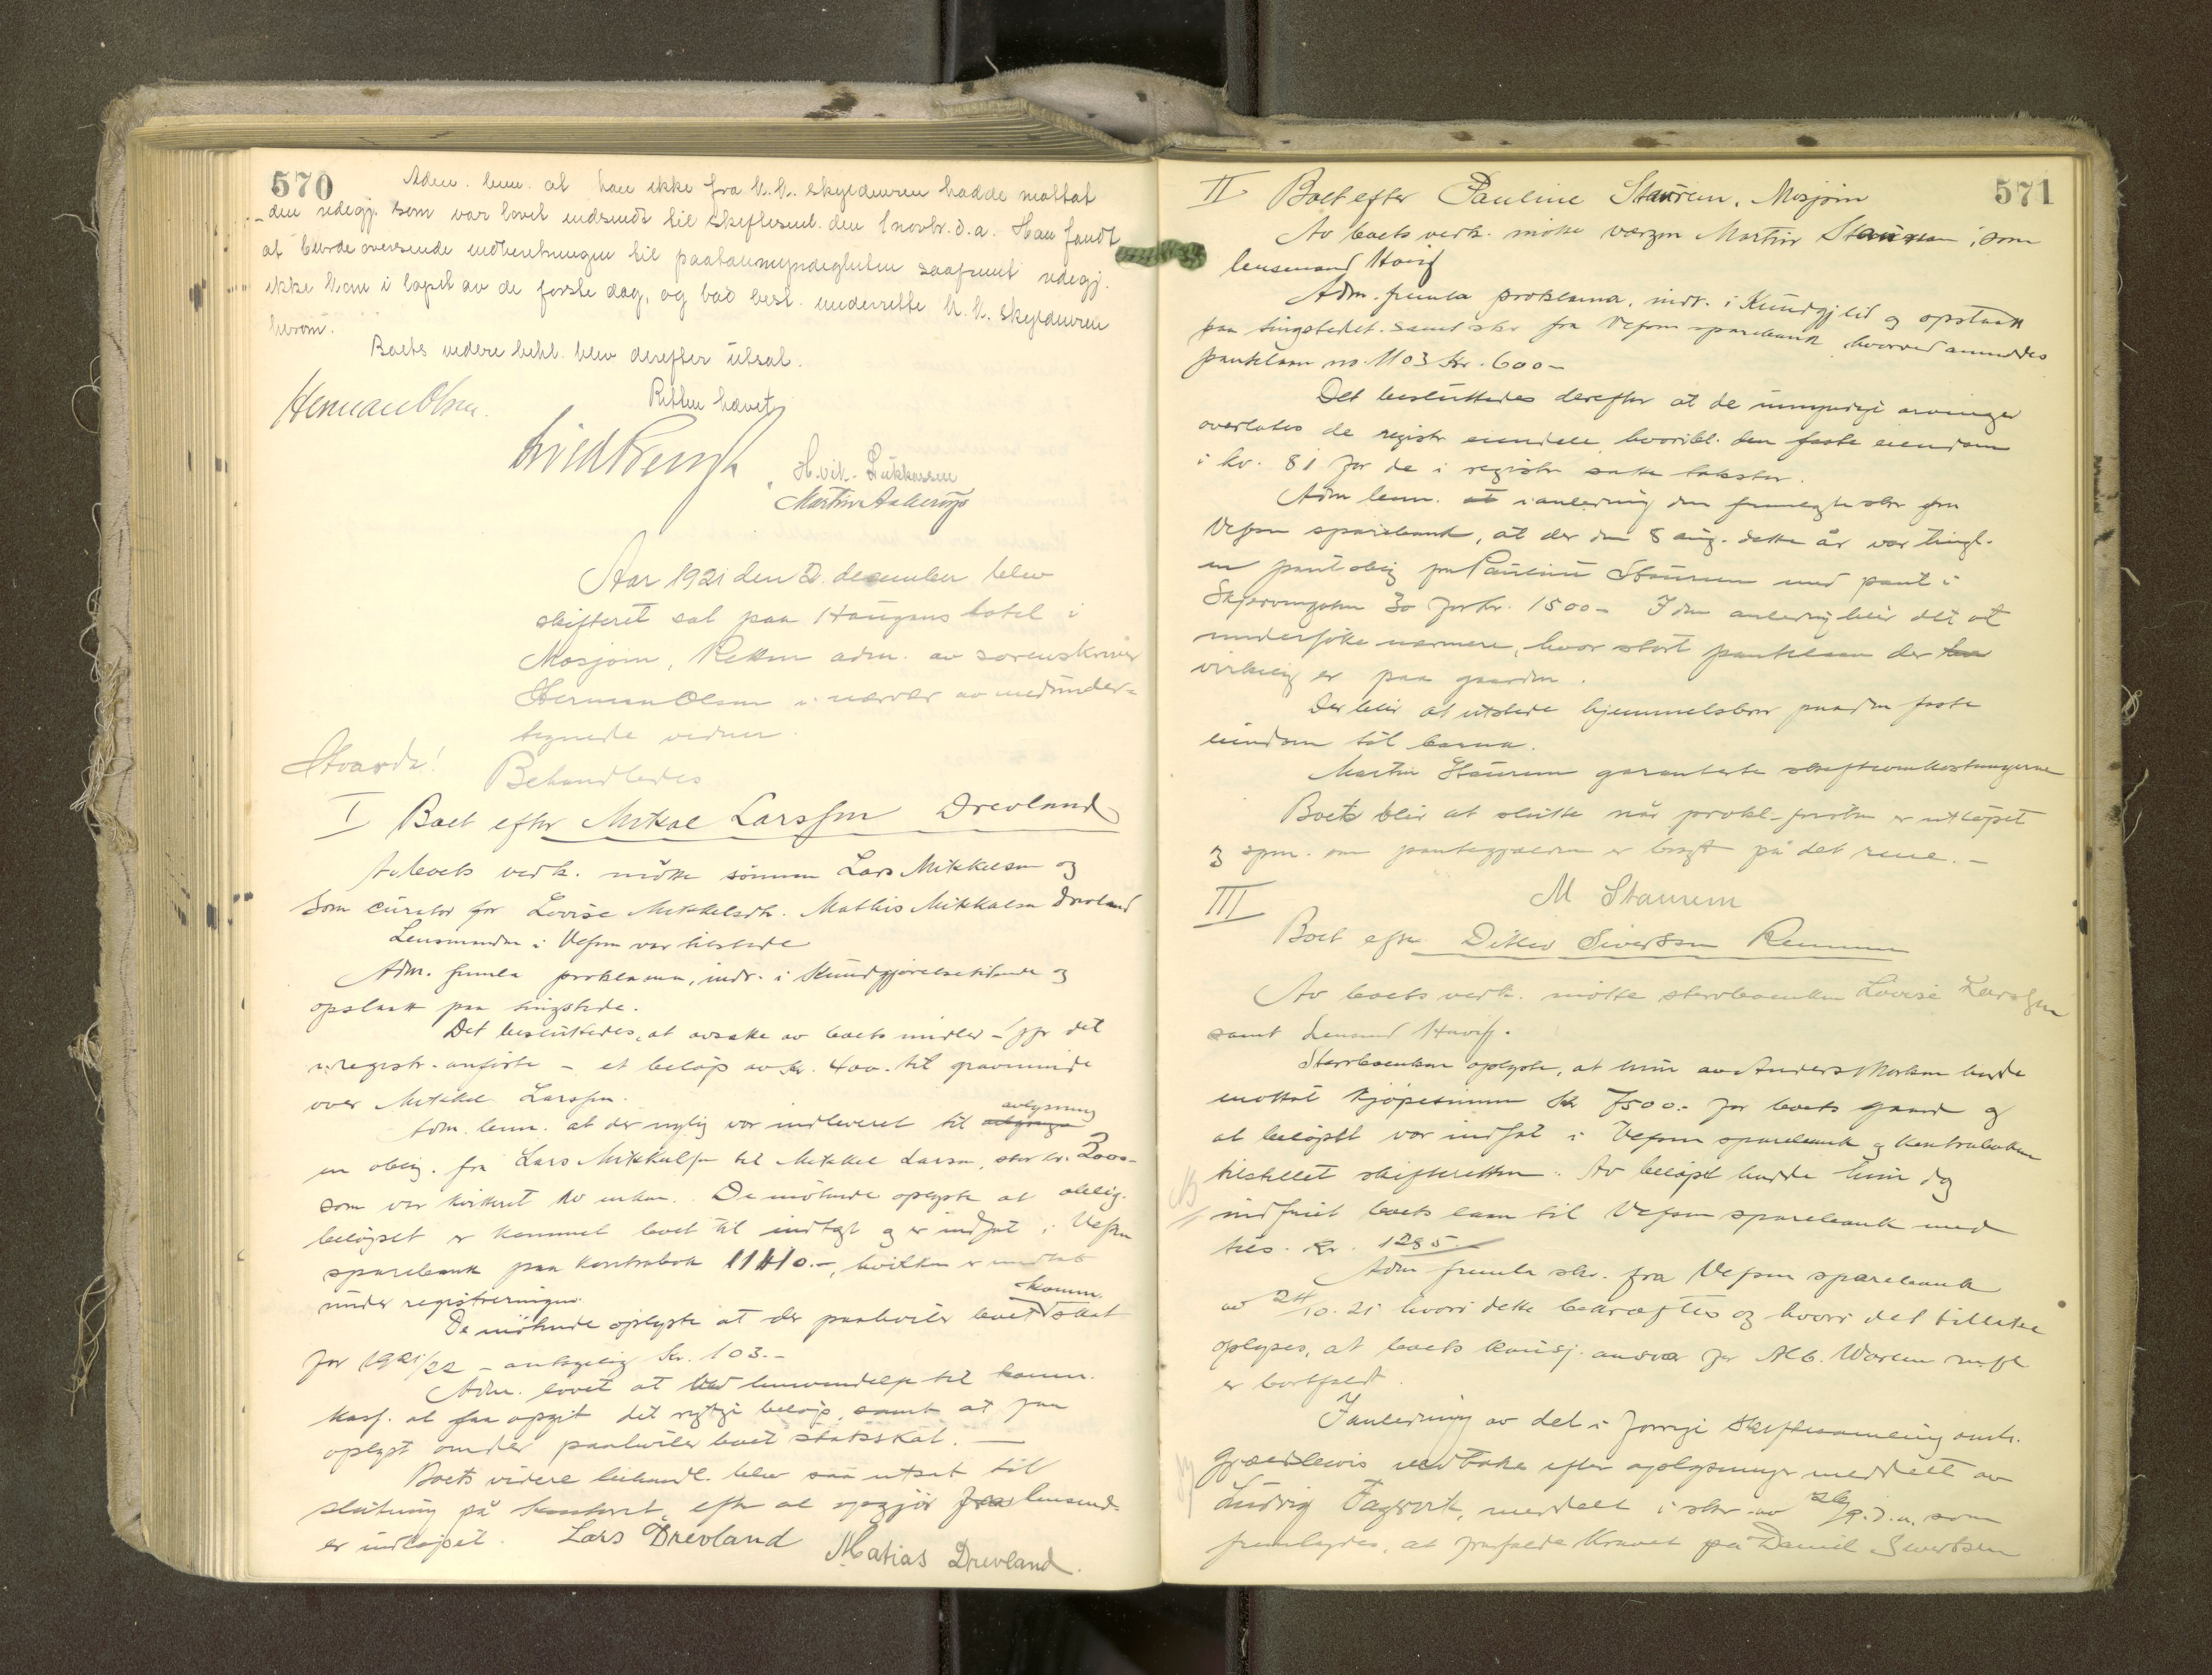 570
Adm. bem. at han ikke fra k.k. skyldneren hadde mottat
den redegj. som var lovet indsendt til skiftesml. den 1 novbr. d.a. Han fandt
at burde oversende indberetningen til paatalemyndigheten saafremt redegj.
ikke kom i løpet av de første dag, og bad best. underrette k.k. skyldneren
herom.
Boets videre behl. blev derefter utsat.
Retten hævet
Herman Olsen.
H. vit. Lukkassen
Martin Aakerøy
Aar 1921 den 2. desember blev
skifteret sat paa Haugans hotel i
Mosjøen, Retten adm. av sorenskriver
Herman Olsen i nærvær av medunder-
tegnede vidner.
Behandledes
I Boet efter Mikal Larssen Drevland
Av boets vedk. møtte sønnen Lars Mikkelsen og
som curator for Lovise Mikkelsdtr. Mathis Mikkalsen Drevland
Lensmanden i Vefsn var tilstede
Adm. fremla proklama, indr. i Kundgjørelsetidende og
opslaatt paa tingstede.
Det besluttedes, at avsætte av boets midler - jfr det
i registr. anførte - et beløp av kr. 400.- til gravminde
over Mikkel Larssen.
Adm. bem. at der nylig var indleveret til avlysning
en oblig. fra Lars Mikkelsen til Mikkel Larsen, stor kr. 2000-
som var kvitteret av enken. De møtende oplyste at oblig.
beløpet er kommet boet til indtægt og er indsat i Vefsn
sparebank paa kontrabok 11410.-, hvilken er medtat
under registreringen.
De møtende oplyste at der paahviler boet komm. skat
for 1921/22 - antagelig kr. 103.-
Adm. lovet at ved henvendelse til komm.
kass. at faa opgit det rigtige beløp, samt at faa
oplyst om der paahviler boet statsskat. -
Boets videre behandl. blev saa utsat til
slutning på kontoret, efter at opgjør fra lensmd.
er indløpet. Lars Drevland
Matias Drevland.
571
II Boet efter Pauline Staurem, Mosjøen
Av boets vedk. møtte værgen Martin Staurem, som
lensmand Havig
Adm. fremla proklama, indr. i Kundgj.tid og opslaatt
paa tingstedet. samt skr fra Vefsn sparebank hvorved anmeldes
pantelaan no. 1103 kr. 600-
Det besluttedes derefter at de umyndige arvinger
overlates de registr eiendele, hvoribl. den faste eiendom
i kv. 81 for de i registr satte takster.
Adm bem. i anledning den fremlagte skr fra
Vefsn sparebank, at der den 8 aug. dette år var tingl.
en pantoblig fra Pauline Staurem med pant i
30 for kr. 1500- I den anledning blir det at
undersøke nærmere, hvor stort pantelaan der
virkelig er paa gaarden.
Der blir at utstede hjemmelsbrev paa den faste
eiendom til barna.
Martin Staurem garanterte skifteomkostningerne
Boets blir at slutte når prokl-fristen er utløpet
og spm. om pantegjælden er bragt på det rene. -
M Staurem
III
Boet efter Ditlev Sivertsen
Av boets vedk. møtte stervboenken Lovise Larssen
samt Lensmand Havig.
Stervboenken oplyste, at hun av Anders hadde
mottat kjøpesummen kr 7500.- for boets gaard og
at beløpet var indsat i Vefsn sparebank og kontraboken
tilstillet skifteretten. Av beløpet hadde hun og
indfriet boets laan til Vefsn sparebank med
tils. kr. 1285.-
Adm fremla skr. fra Vefsn sparebank
av 24/10.21 hvori dette bekræftes og hvori det tillike
oplyses, at boets kausj. ansvar for Alb.
er bortfaldt.
I anledning av det i forrige skiftesamling anh.
gjældsbevis efter oplysninger meddelt av
Ludvig Fagervik, meddelt i skr. av 9. d.a. som
fremlagdes, at frafalde kravet på Daniel Sivertsen